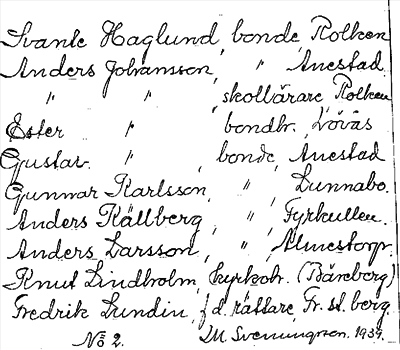 Svante Haglund, bonde, Rolken
Anders Johansson, " Anestad
" " , skollärare, Rolken
Ester " bondtr. Lövås
Gustav. " , bonde, Anestad
Gunnar Karlsson, " , Lunnabo.
Anders Källberg, " , Fyrkullen.
Anders Larsson, " , Almestorp.
Knut Lindholm, kyrkoh. (Bäreberg)
Fredrik Lundin, f.d. rättare, Fr. st. berg.
No 2. M. Svenungson. 1939.